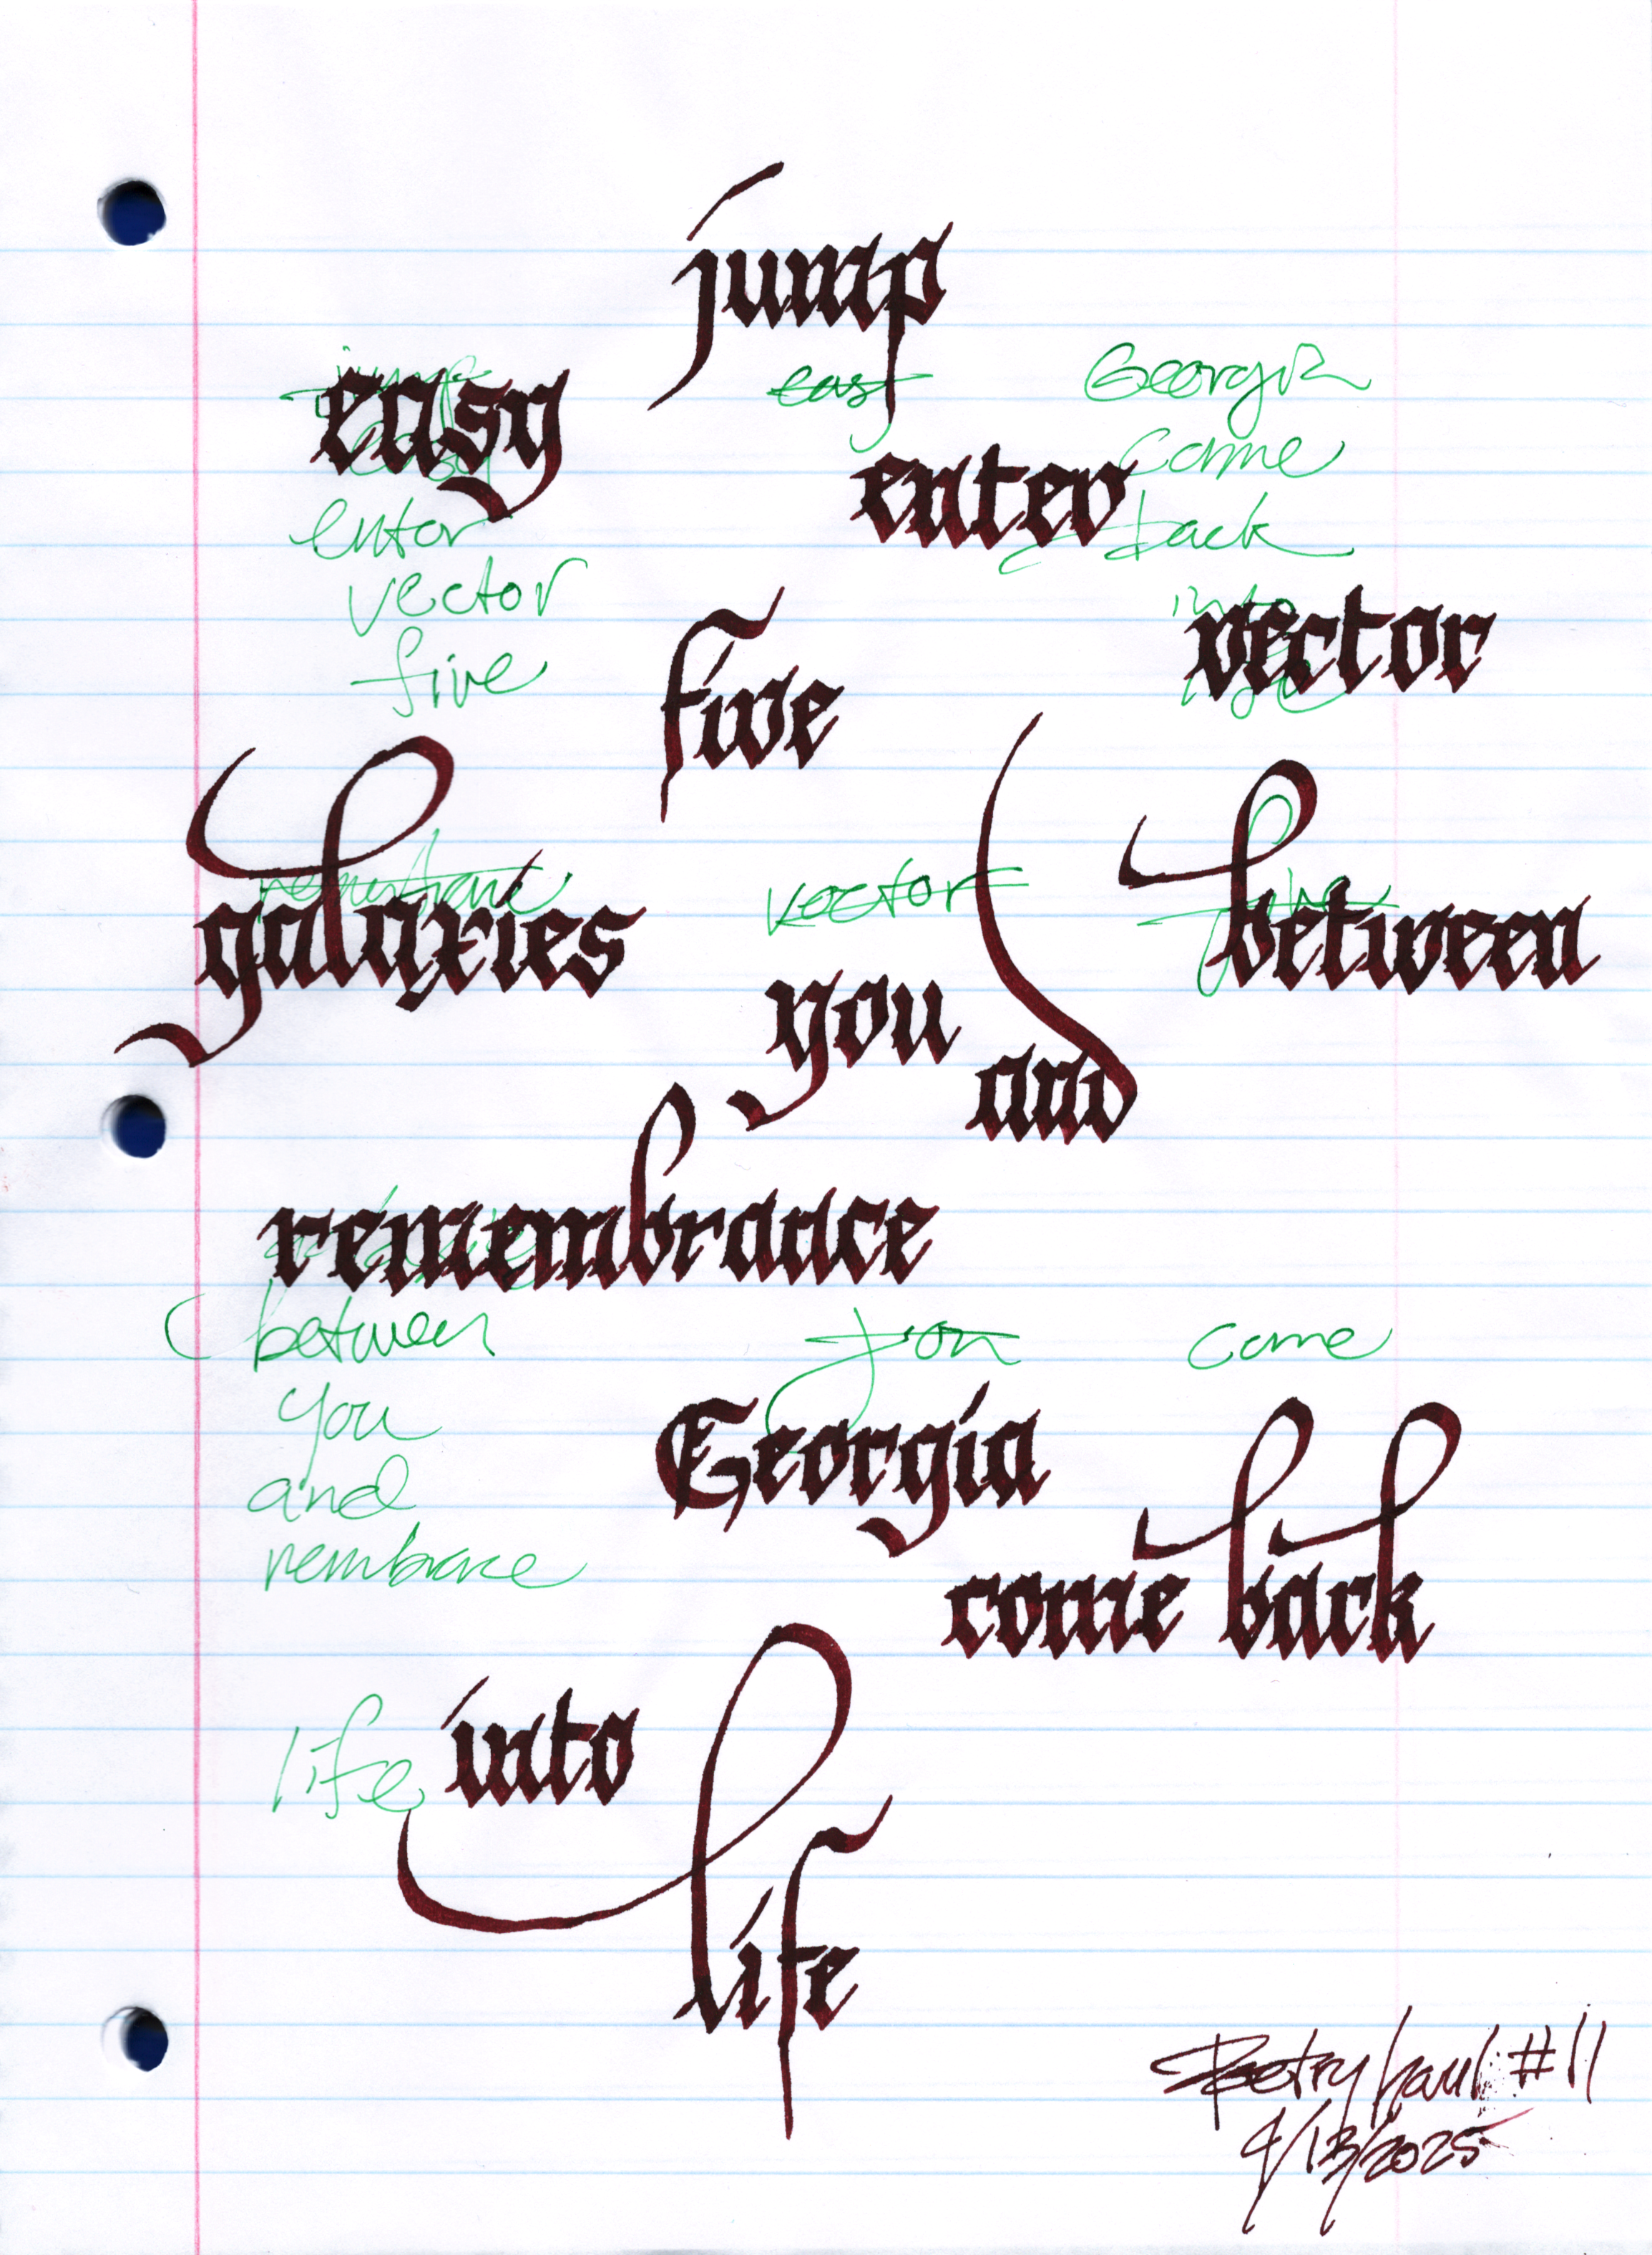 jump
easy
east
Georgia
come
enter
entor
back
vector
into
vector
five
five
galaxies
vector
between
you
and
remembrance
between
you
come
you
Georgia
and
rembrace
come back
into
life
life
Poetry haul #11
4/13/2025